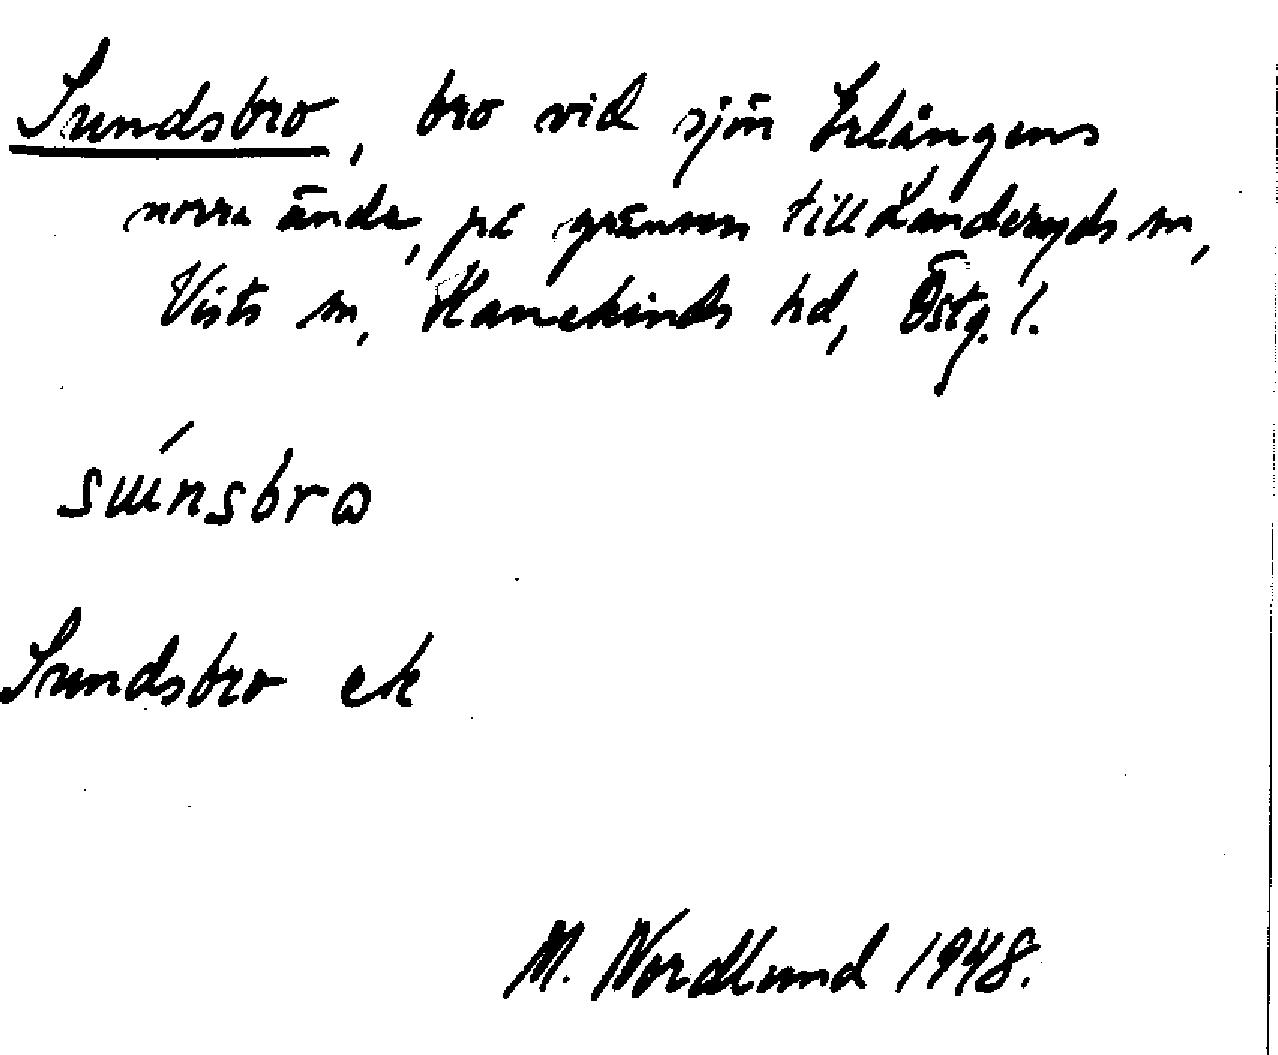 Sundsbro, bro vid sjön Erlångens
norra ände, på gränsen till Landeryds sn,
Vists sn, Hanekinds hd, Östg. l.
sɯ́nsbrɷ
Sundsbro ek
M. Nordlund 1948.